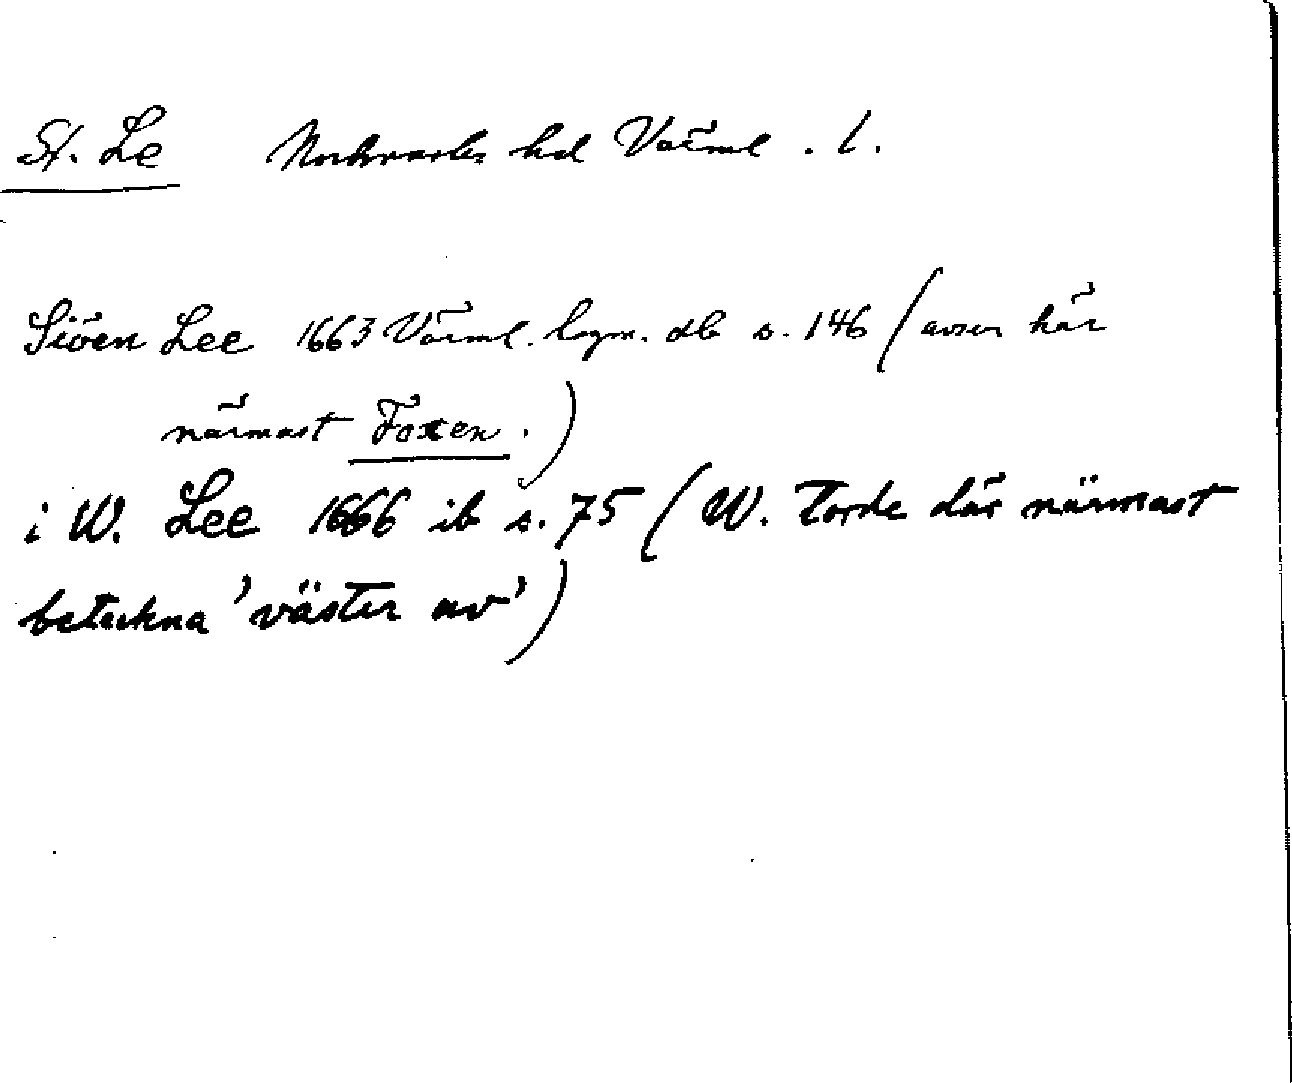 St. Le Nordmarks hd Värml. l.
Siöen Lee 1663 Värml. lagm. db s. 146 (avser här
närmast Foxen.)
i W. Lee 1666 ib s. 75 (W. torde där närmast
beteckna 'väster av')